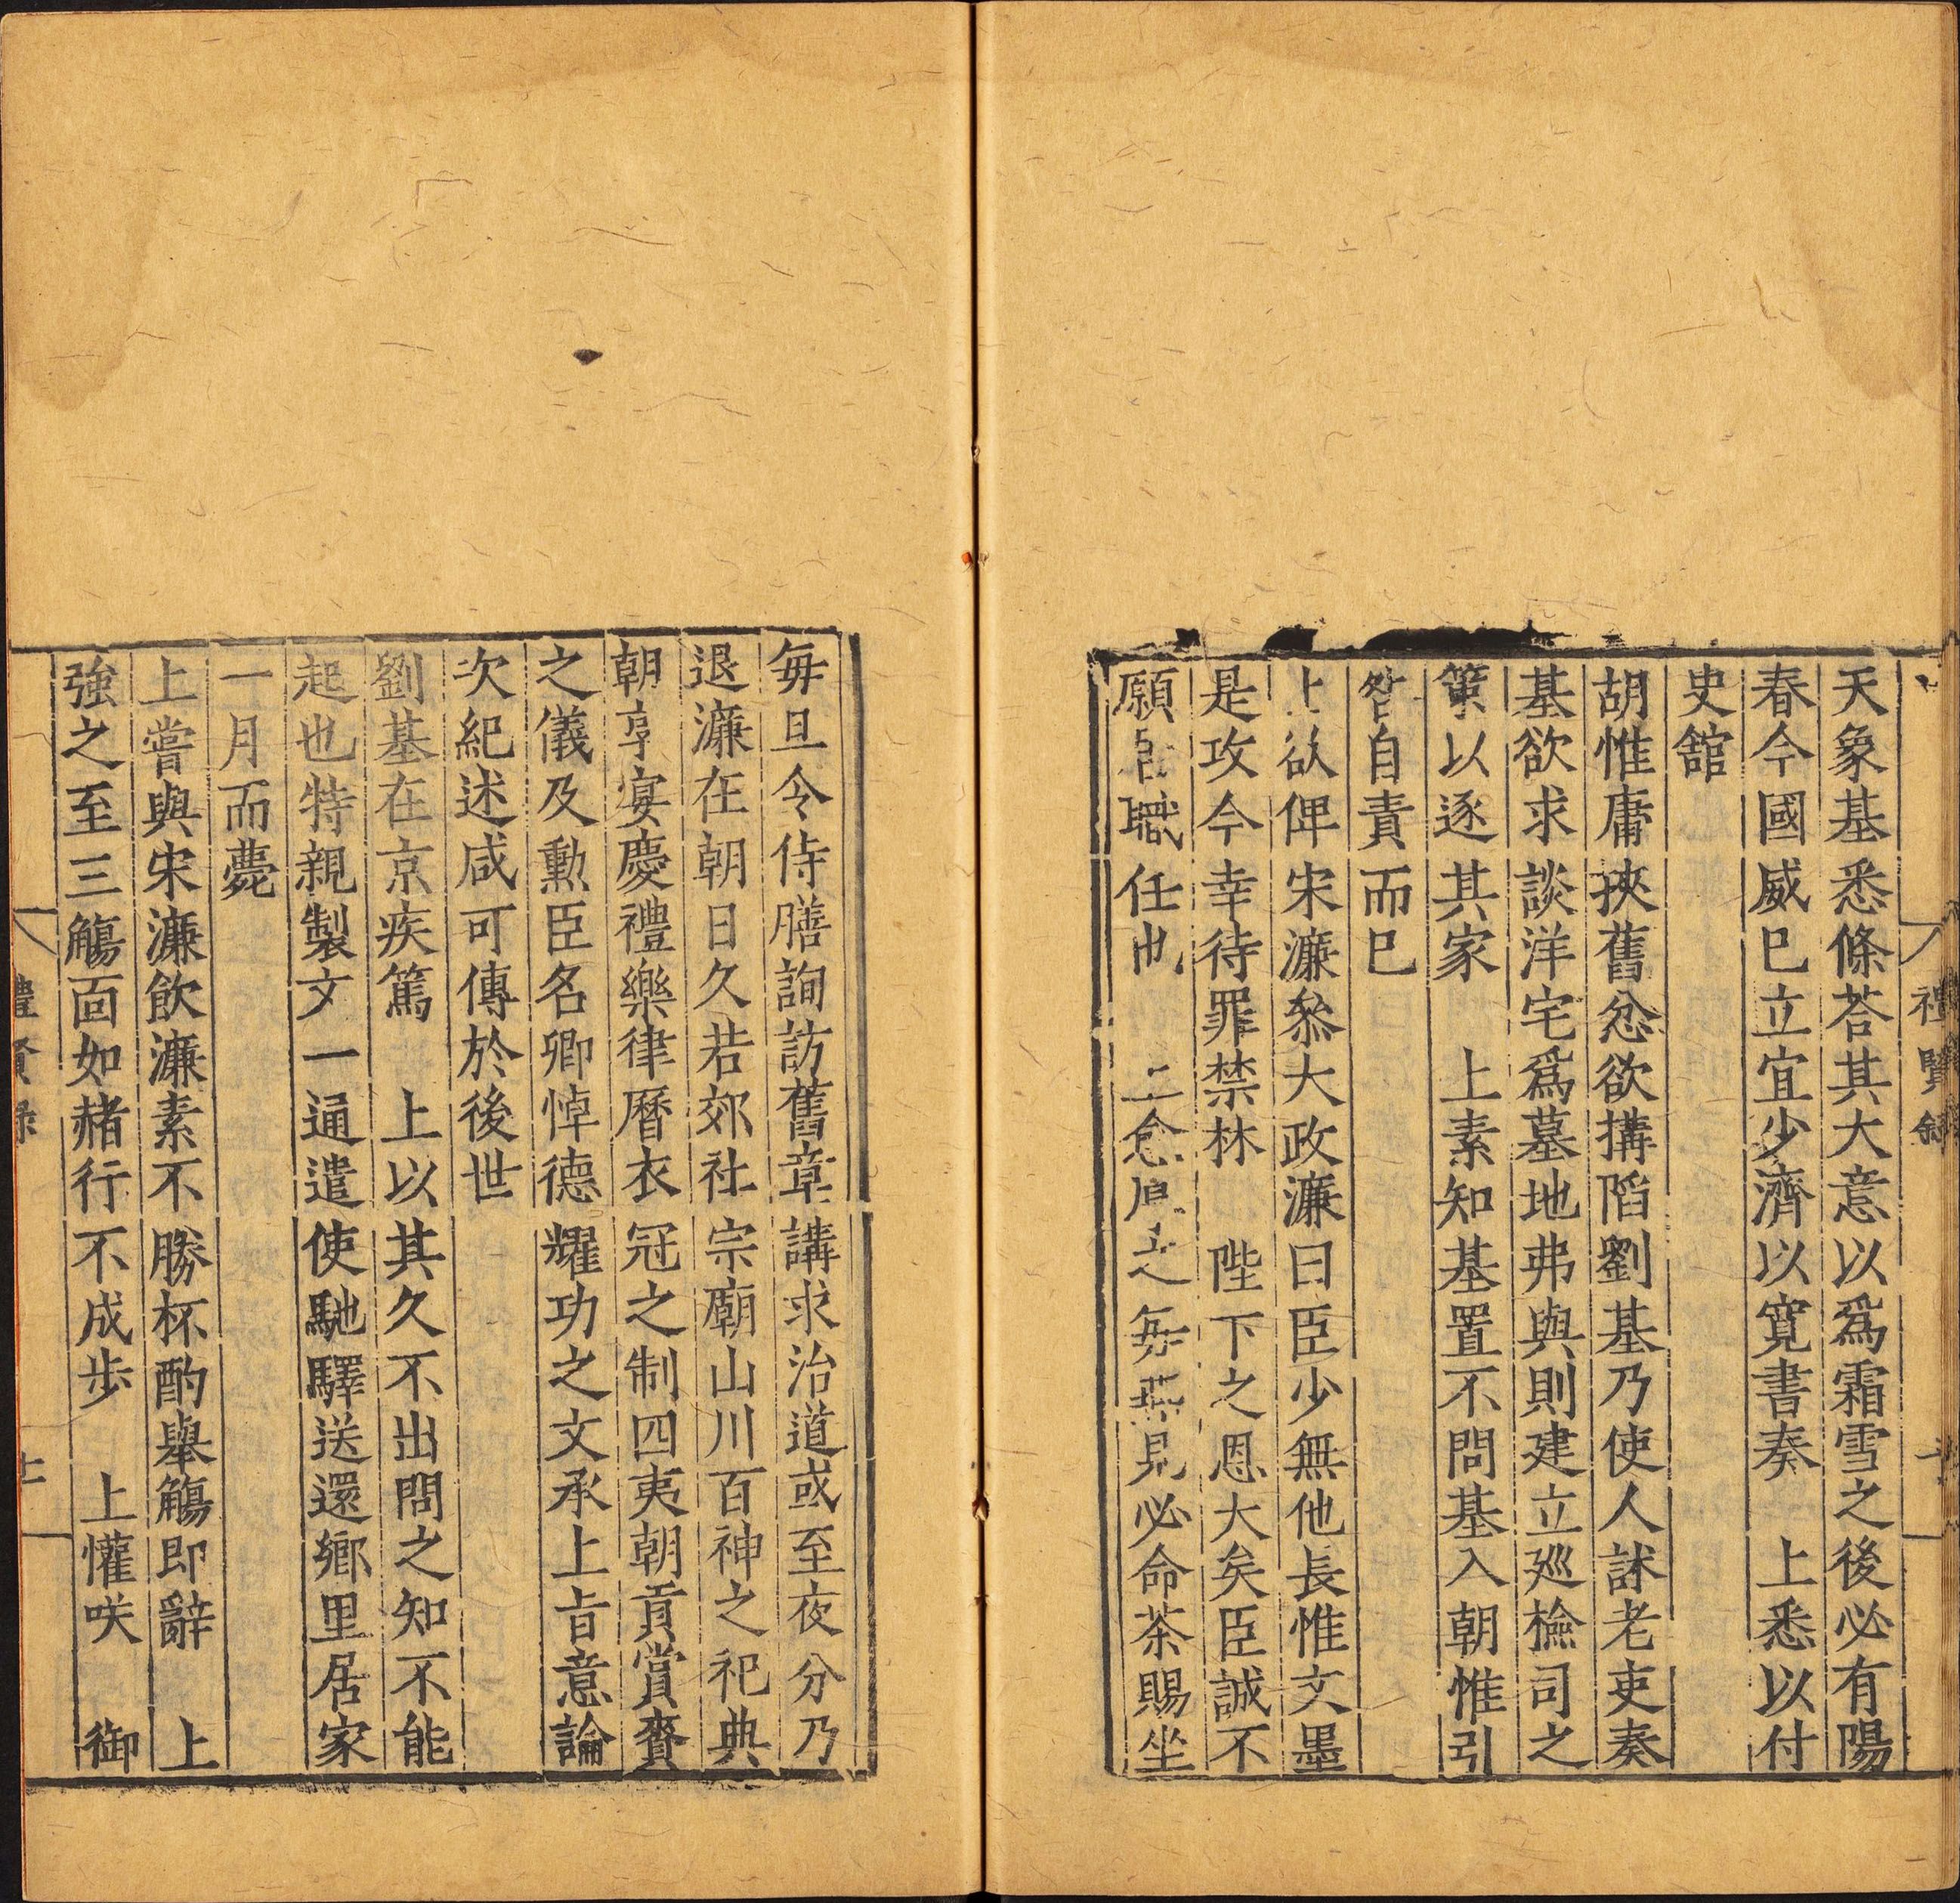 天象基悉條荅其大意以爲霜雪之後必有陽
春今國威已立宜少濟以寬書奏　上悉以付
史舘
胡惟庸挾舊忿欲搆陷劉基乃使人訹老吏奏
基欲求談洋宅爲墓地弗與則建立廵檢司之
策以逐其家　上素知基置不問基入朝惟引
咎自責而已
上欲俾宋濂叅大政濂曰臣少無他長惟文墨
是攻今幸待罪禁林　陛下之恩大矣臣誠不
願居職任也　上愈厚之毎燕見必命茶賜坐
毎旦令侍膳詢訪舊章講求治道或至夜分乃
退濂在朝日久若郊社宗廟山川百神之祀典
朝享宴慶禮樂律曆衣冠之制四夷朝貢賞賚
之儀及勲臣名卿焯德耀功之文承上旨意論
次紀述咸可傳於後世
劉基在京疾篤　上以其久不出問之知不能
起也特親製文一通遣使馳驛送還鄉里居家
一月而薨
上嘗與宋濂飲濂素不勝杯酌舉觴即辭　上
強之至三觴面如赭行不成步　上懽咲　御
禮賢録